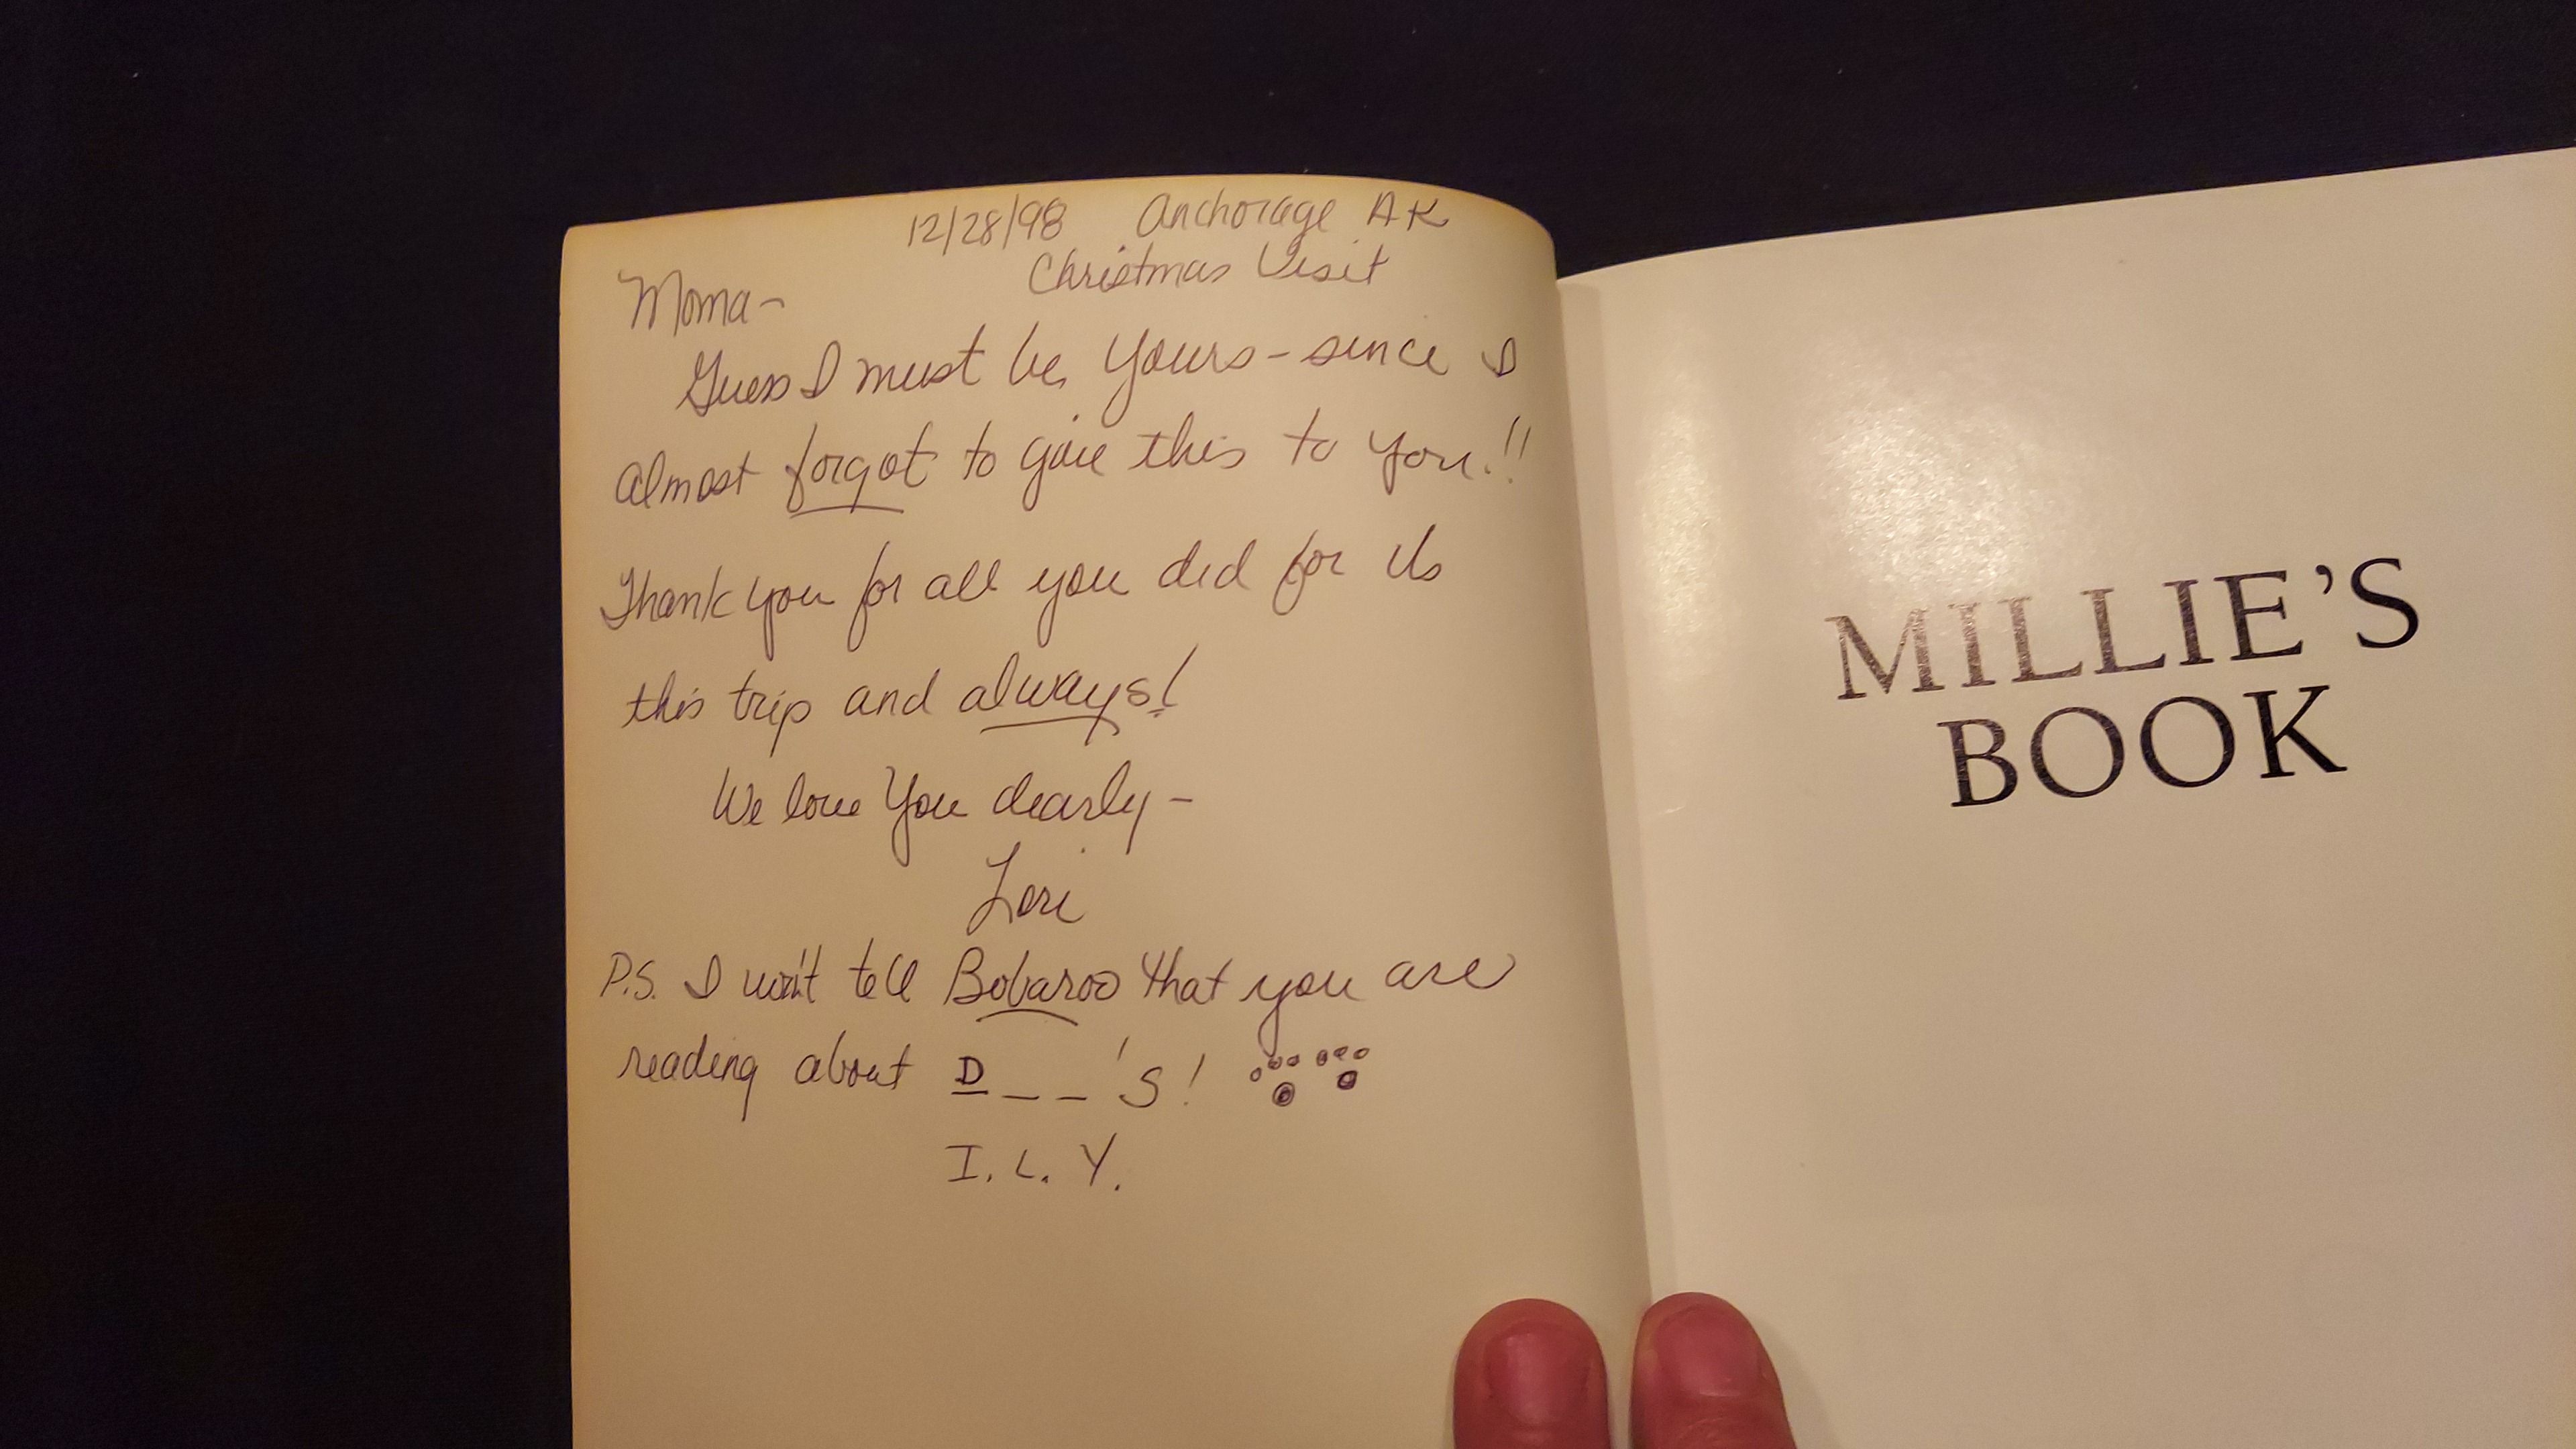 12/28/98 Anchorage AK
Christmas Visit
Moma-
Guess I must be Yours - since I
almost forgot to give this to you.!!
Thank you for all you did for Us
this trip and always!
We love You dearly -
Lori
P.S. I won't tell Bobaroo that you are
reading about D _ _ 'S!
I. L. Y.
MILLIE'S
BOOK